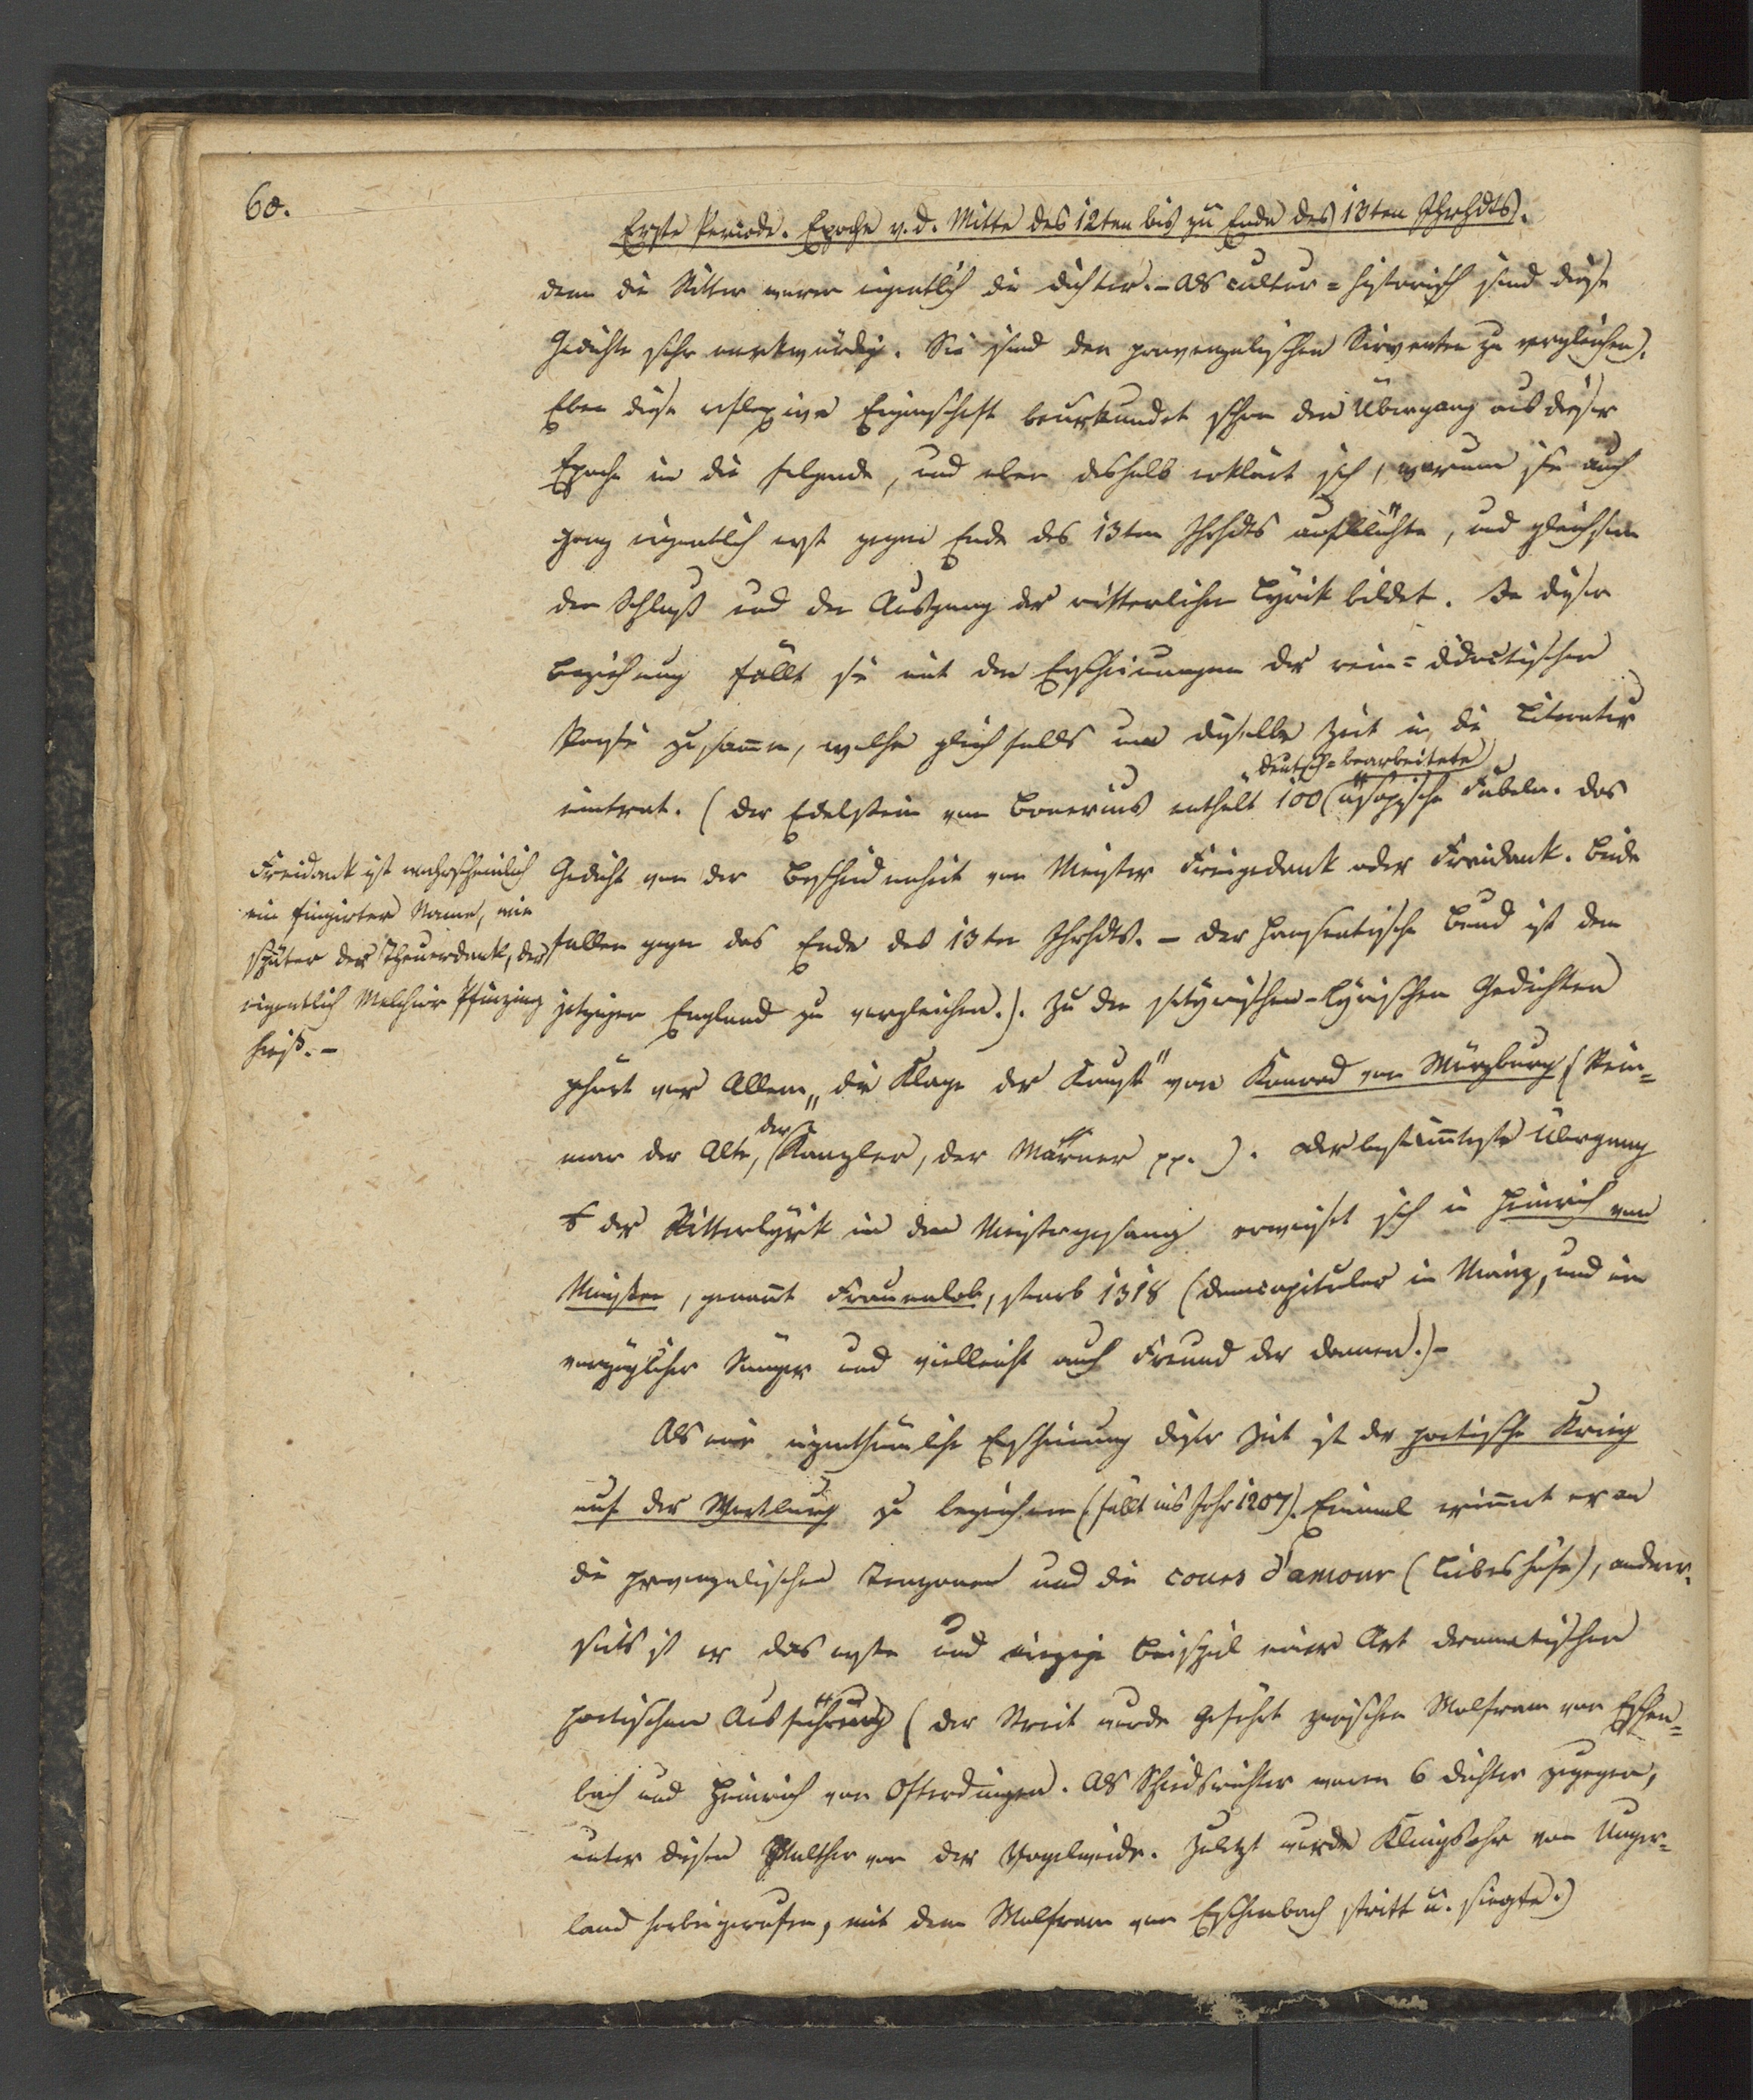 60.
Erste Periode. Epoche v. d. Mitte des 12ten bis zu Ende des 13ten Jhrhdts.
denn die Ritter waren eigentlich die Dichter. – Als cultur=historisch sind diese
Gedichte sehr merkwürdig. Sie sind den provenzalischen Sirventen zu vergleichen).
Eben diese reflexive Eigenschaft beurkundet schon den Übergang aus dieser
Epoche in die folgende, und eben deshalb erklärt sich, warum sie auch
ganz eigentlich erst gegen Ende des 13ten Jhrhdts aufblühte, und gleichsam
den Schluß und den Ausgang der ritterlichen Lyrik bildet. In dieser
Beziehung fällt sie mit den Erscheinungen der rein=didactischen
Poesie zusam̄en, welche gleichfalls um dieselbe Zeit in die Literatur
deutsch=bearbeitete
eintrat. (Der Edelstein von Bonerius enthält 100 (äsopische Fabeln. Das
Gedicht von der Bescheidenheit von Meister Freigedank oder Freidank. Beide
fallen gegen das Ende des 13ten Jhrhdts. – Der hanseatische Bund ist dem
jetzigen England zu vergleichen.). Zu den satyrischen-lyrischen Gedichten
gehört vor Allem „die Klage der Kunst" von Konrad von Würzburg (Rein=
der
mar der Alte, Kanzler, der Marner pp.). Der bestim̄teste Übergang
der Ritterlyrik in den Meistergesang erweiset sich in Heinrich von
Meißen, genan̄t Frauenlob, starb 1318 (Domcapitular in Mainz, und ein
vorzüglicher Sänger und vielleicht auch Freund der Damen.) –
Als eine eigenthümliche Erscheinung dieser Zeit ist der poetische Krieg
auf der Wartburg zu bezeichnen (fällt ins Jahr 1207). Einmal erin̄ert er an
die provenzalischen Tenzonen und die cours d'amour (Liebeshöfe), anderer=
seits ist er das erste und einzige Beispiel einer Art dramatischen
poetischen Ausführung (der Streit wurde geführt zwischen Wolfram von Eschen=
bach und Heinrich von Ofterdingen. Als Schiedsrichter waren 6 Dichter zugegen,
unter diesen Walther von der Vogelweide. Zuletzt wurde Klingsohr von Unger=
land herbeigerufen, mit dem Wolfram von Eschenbach stritt u. siegte.)
Freidank ist wahrscheinlich
ein fingirter Name, wie
später der Theuerdank, der
eigentlich Melchior Pfinzing
hieß. –